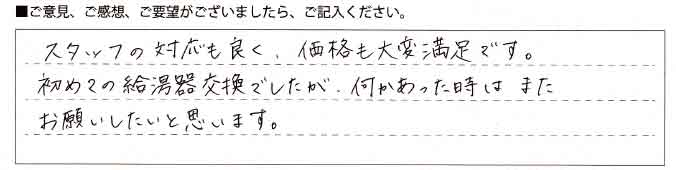 ■ご意見、ご感想、ご要望がございましたら、ご記入ください。
スタッフの対応も良く、価格も大変満足です。
初めての給湯器交換でしたが、何かあった時は また
お願いしたいと思います。